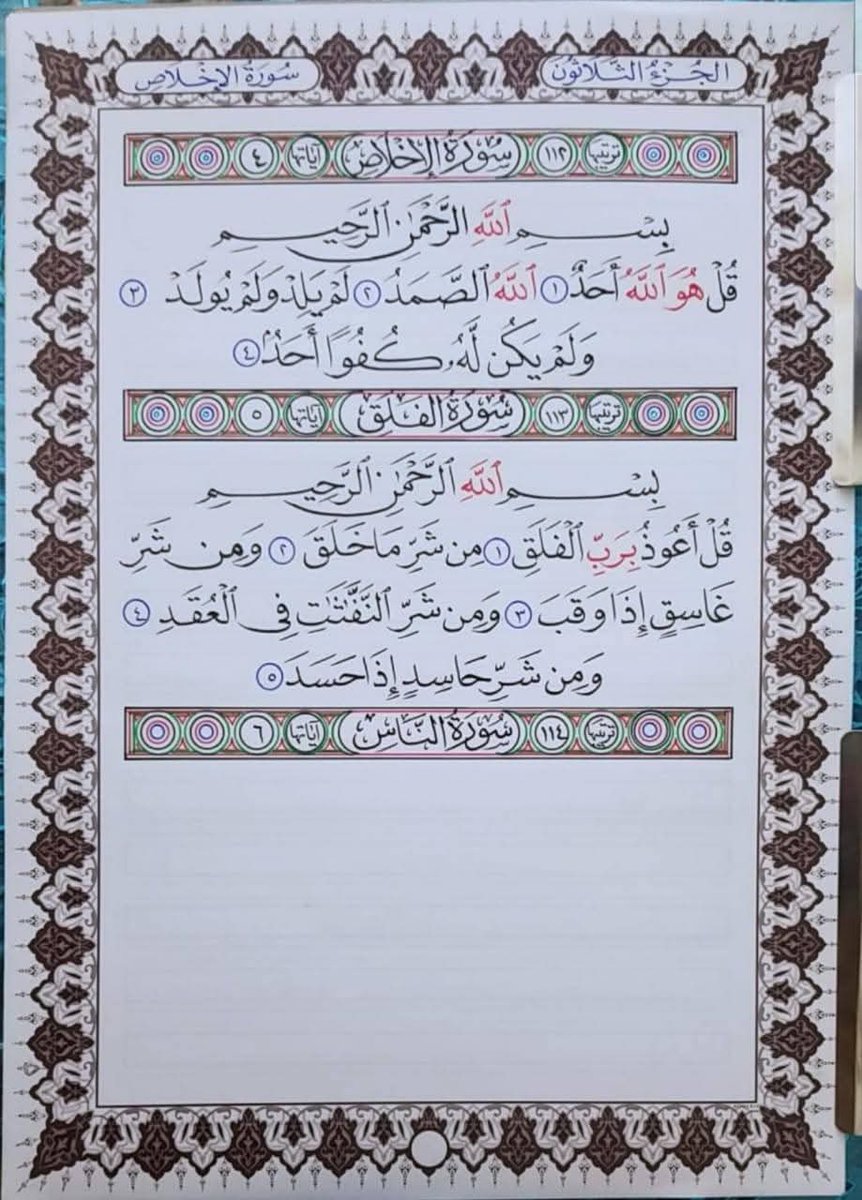 الجُزْءُ الثَّلَاثُونَ سُورَةُ الإِخْلَاصِ
تَرتيبُها ١١٢ سُورَةُ الإِخْلَاصِ آيَاتُها ٤
بِسْمِ ٱللَّهِ ٱلرَّحْمَٰنِ ٱلرَّحِيمِ
قُلْ هُوَ ٱللَّهُ أَحَدٌ ١ ٱللَّهُ ٱلصَّمَدُ ٢ لَمْ يَلِدْ وَلَمْ يُولَدْ ٣
وَلَمْ يَكُن لَّهُۥ كُفُوًا أَحَدٌۢ ٤
تَرتيبُها ١١٣ سُورَةُ الفَلَقِ آيَاتُها ٥
بِسْمِ ٱللَّهِ ٱلرَّحْمَٰنِ ٱلرَّحِيمِ
قُلْ أَعُوذُ بِرَبِّ ٱلْفَلَقِ ١ مِن شَرِّ مَا خَلَقَ ٢ وَمِن شَرِّ
غَاسِقٍ إِذَا وَقَبَ ٣ وَمِن شَرِّ ٱلنَّفَّٰثَٰتِ فِى ٱلْعُقَدِ ٤
وَمِن شَرِّ حَاسِدٍ إِذَا حَسَدَ ٥
تَرتيبُها ١١٤ سُورَةُ النَّاسِ آيَاتُها ٦